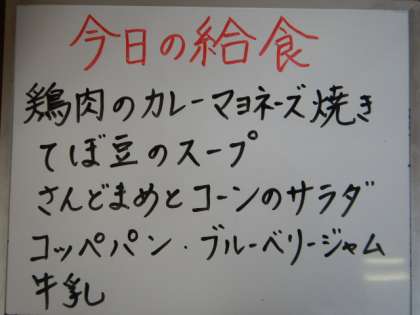 今日の給食
鶏肉のカレーマヨネーズ焼き
てぼ豆のスープ
さんどまめとコーンのサラダ
コッペパン・ブルーベリージャム
牛乳